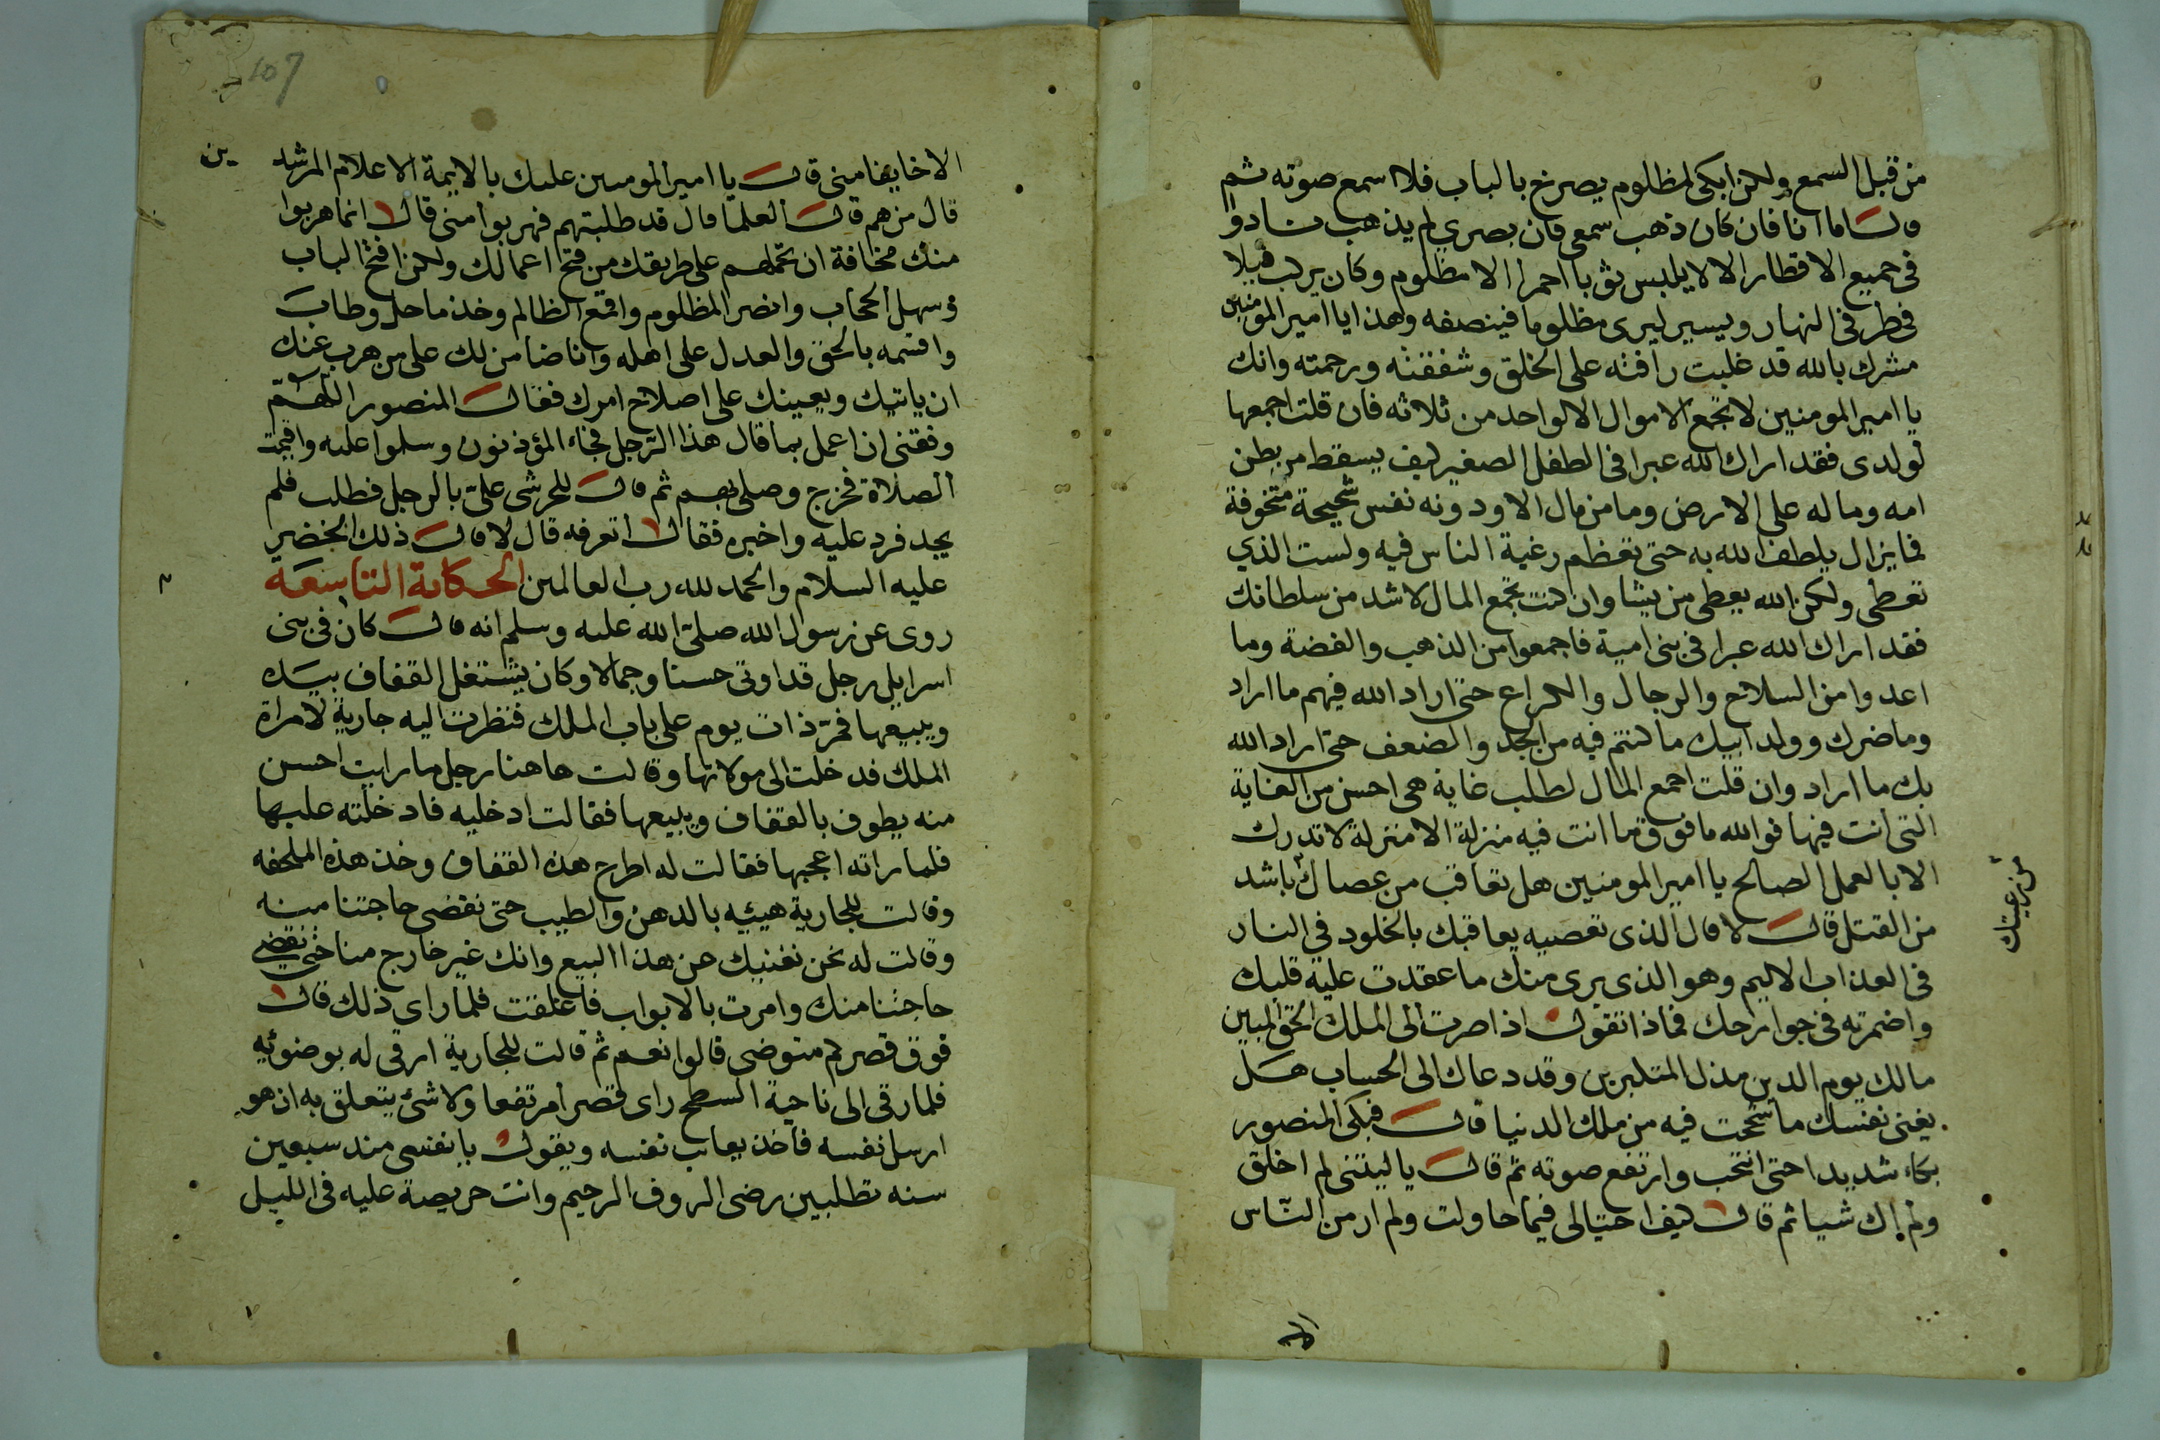 من قبل السمع ولكن ابكى لمظلوم يصرخ بالباب فلا اسمع صوته ثم
قال اما انا فان كان ذهب سمعى فان بصري لم يذهب نادوا
فى جميع الاقطار الا لا يلبس ثوبا احمرا الا مظلوم وكان يركب فيلا
فى طرفى النهار ويسير ليرى مظلوما فينصفه وهذا يا امير المومنين
مشرك بالله قد غلبت رافته على الخلق وشفقته ورحمته وانك
يا امير المومنين لا تجمع الاموال الا لواحد من ثلاثه فان قلت اجمعها
لولدى فقد اراك الله عبرا فى الطفل الصغير كيف يسقط من بطن
امه وماله على الارض وما من مال الا ودونه نفس شحيحة متخوفة
فما يزال يلطف الله به حتى تعظم رغبة الناس فيه ولست الذي
تعطى ولكن الله يعطى من يشا وان كنت تجمع المال لاشد من سلطانك
فقد اراك الله عبرا فى بنى امية فاجمعوا من الذهب والفضة وما
اعدوا من السلاح والرجال والكراع حتى اراد الله فيهم ما اراد
وما ضرك وولد ابيك ما كنتم فيه من الجد والضعف حتى اراد الله
بك ما اراد وان قلت اجمع المال لطلب غاية هى احسن من الغاية
التى انت فيها فوالله ما فوق ما انت فيه منزلة الا منزلة لا تدرك
الا بالعمل الصالح يا امير المومنين هل تعاقب من عصاك باشد
من رعيتك
من القتل قال لا قال الذى تعصيه يعاقبك بالخلود فى النار
فى العذاب الاليم وهو الذى يرى منك ما عقدت عليه قلبك
واضمرته فى جوارحك فماذا تقول اذا صرت الى الملك الحق المبين
مالك يوم الدين مذل المتكبرين وقد دعاك الى الحساب هل
يغنى نفسك ما شححت فيه من ملك الدنيا قال فبكى المنصور
بكاء شديدا حتى انتحب وارتفع صوته ثم قال يا ليتنى لم اخلق
ولم اك شيا ثم قال كيف احتيالى فيما حاولت ولم ار من الناس
الا
107
الا خايفا منى قال يا امير المومنين عليك بالايمة الاعلام المرشدين
قال من هم قال العلما قال قد طلبتهم فهربوا منى قال انما هربوا
منك مخافة ان تحملهم على طريقك من قبح اعمالك ولكن افتح الباب
وسهل الحجاب وانصر المظلوم واقمع الظالم وخذ ما حل وطاب
واقسمه بالحق والعدل على اهله وانا ضامن لك على من هرب عنك
ان ياتيك ويعينك على اصلاح امرك فقال المنصور اللهم
وفقنى ان اعمل بما قال هذا الرجل فجاء المؤذنون وسلموا عليه واقيمت
الصلاة فخرج وصلى بهم ثم قال للحرشى علىّ بالرجل فطلب فلم
يجد فرد عليه واخبره فقال اتعرفه قال لا قال ذلك الخضير
عليه السلام والحمد لله رب العالمين الحكاية التاسعة
روى عن رسول الله صلى الله عليه وسلم انه قال كان فى بنى
اسرايل رجل قد اوتى حسنا وجمالا وكان يشتغل القفاف بيده
ويبيعها فمرّ ذات يوم على باب الملك فنظرت اليه جارية لامراة
الملك فدخلت الى مولاتها وقالت هاهنا رجل ما رايت احسن
منه يطوف بالقفاف ويبيعها فقالت ادخليه فادخلته عليها
فلما راته اعجبها فقالت له اطرح هذه القفاف وخذ هذه الملحفه
وقالت للجارية هيئيه بالدهن والطيب حتى نقضى حاجتنا منه
وقالت له نحن نغنيك عن هذا البيع وانك غير خارج منا حتى نقضى
حاجتنا منك وامرت بالابواب فاغلقت فلما راى ذلك قال
فوق قصركم متوضى قالوا نعم ثم قالت للجارية ارقى له بوضوئه
فلما رقى الى ناحية السطح راى قصرا مرتفعا ولا شئ يتعلق به ان هو
ارسل نفسه فاخذ يعاتب نفسه ويقول يا نفسى منذ سبعين
سنه تطلبين رضى الروف الرحيم وانت حريصة عليه فى الليل